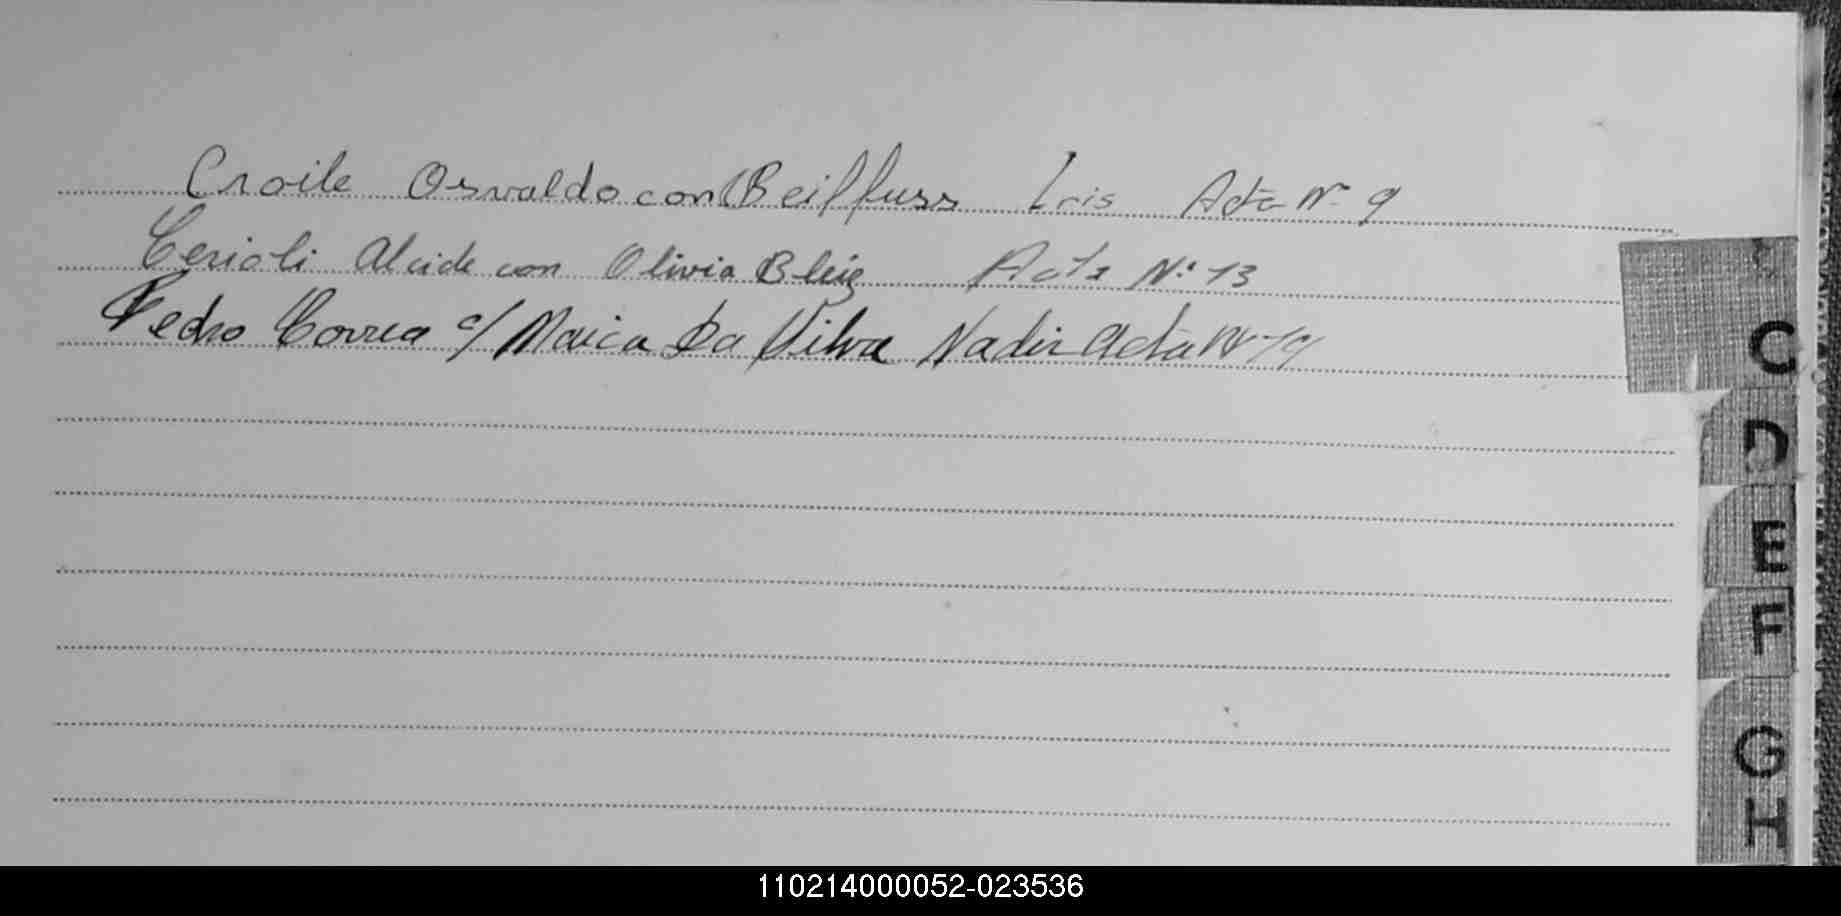 Croile Osvaldo con Beilfuss Iris Acta Nº 9
Cerioli Alcide con Olivia Bleiz Acta Nº 13
Pedro Correa c/ Maria Da Silva Nadir Acta Nº 19
C
D
E
F
G
H
110214000052-023536